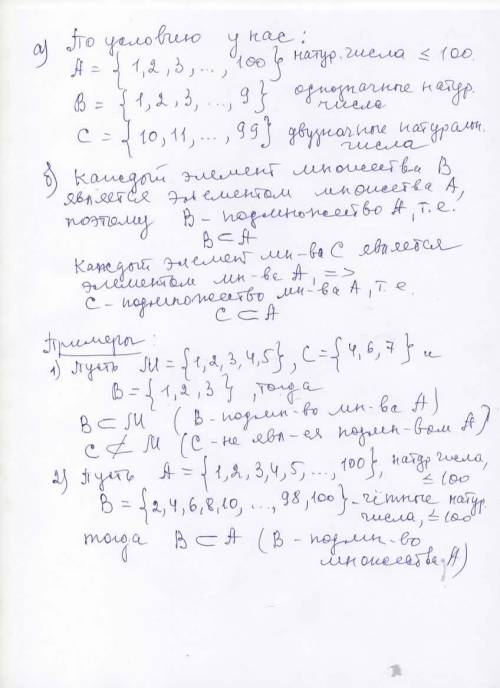 а) По условию у нас:
A = {1, 2, 3, ..., 100} натур. числа ≤ 100.
B = {1, 2, 3, ..., 9} однозначные натур. числа
C = {10, 11, ..., 99} двузначные натуральн. числа
б) Каждый элемент множества B
является элементом множества A,
поэтому B - подмножество A, т.е.
B ⊂ A
Каждый элемент мн-ва C является
элементом мн-ва A, =>
C - подмножество мн-ва A, т.е.
C ⊂ A
Примеры:
1) Пусть M = {1, 2, 3, 4, 5}, C = {4, 6, 7} и
B = {1, 2, 3}, тогда
B ⊂ M (B - подмн-во мн-ва A)
C ⊄ M (C - не явл-ся подмн-вом A)
2) Пусть A = {1, 2, 3, 4, 5, ..., 100}, натур числа, ≤ 100
B = {2, 4, 6, 8, 10, ..., 98, 100} - чётные натур. числа, ≤ 100
тогда B ⊂ A (B - подмн-во
множества A)